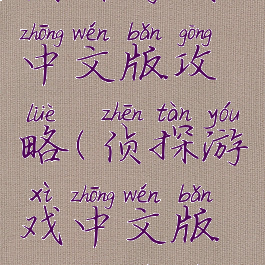 zhōng wén bǎn gōng
中文版攻
lüè zhēn tàn yóu
略(侦探游
xì zhōng wén bǎn
戏中文版